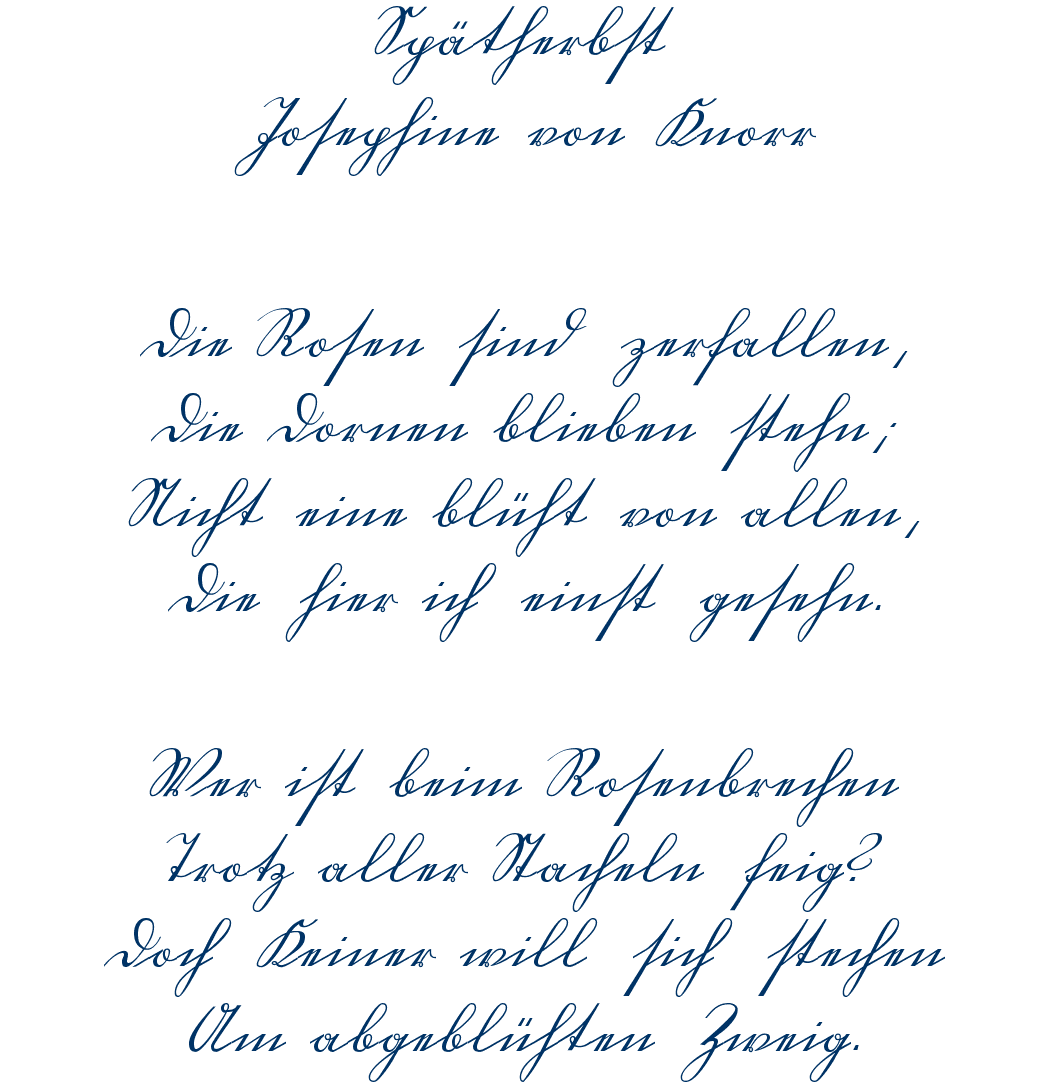 Spätherbst
Josephine von Knorr
Die Rosen sind zerfallen,
Die Dornen blieben stehn;
Nicht eine blüht von allen,
Die hier ich einst gesehn.
Wer ist beim Rosenbrechen
Trotz aller Stacheln feig?
Doch Keiner will sich stechen
Am abgeblühten Zweig.